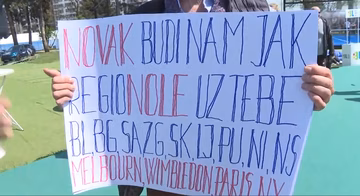 NOVAK BUDI NAM JAK
REGIONOLE UZ TEBE
BL, BG, SA, ZG, SK, LJ, PU, NI, NS
MELBOURN, WIMBLEDON, PARIS, NY